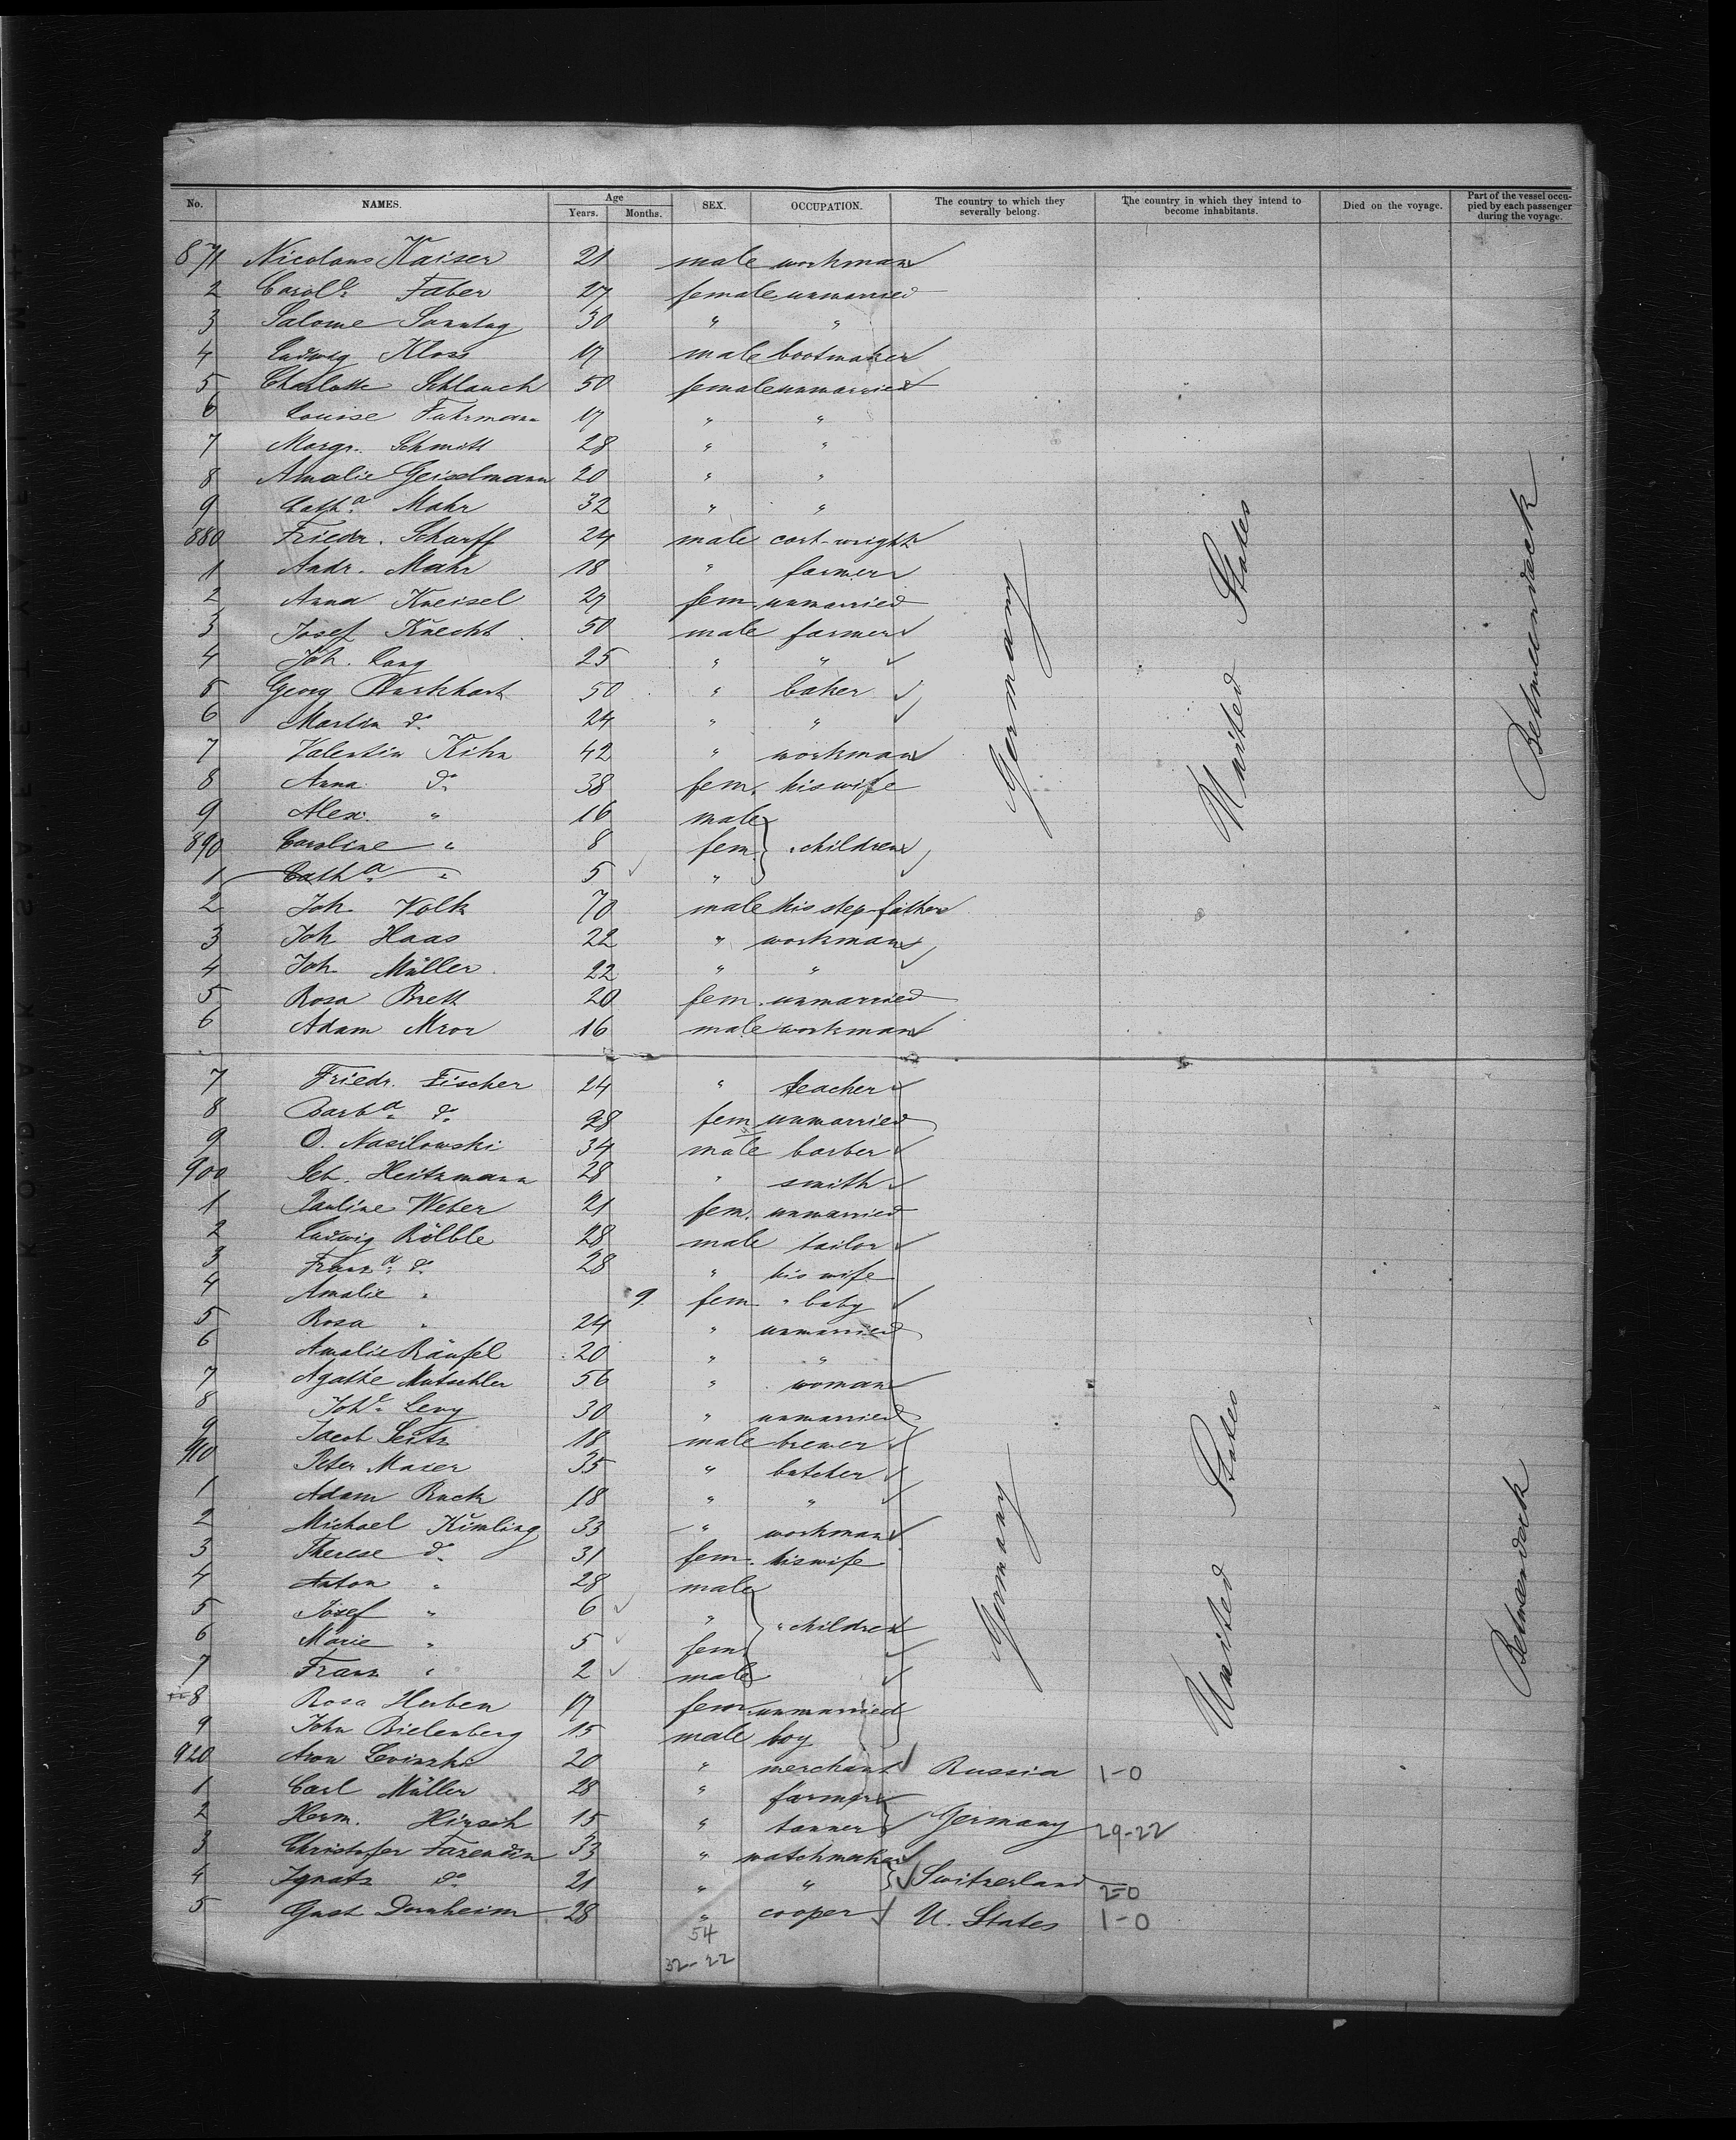 No. NAMES. Age Years. Months. SEX. OCCUPATION. The country to which they severally belong. The country in which they intend to become inhabitants. Died on the voyage. Part of the vessel occupied by each passenger during the voyage.
871 Nicolaus Kaiser 21 male workman
2 Carol.e Faber 27 female unmarried
3 Salome Sonntag 30 " "
4 Ludwig Kloss 17 male bootmaker
5 Charlotte Schlauch 50 female unmarried
6 Louise Fuhrmann 17 " "
7 Margr. Schmitt 28 " "
8 Amalie Geisselmann 20 " "
9 Cath.a Mahr 32 " "
880 Friedr. Scharff 24 male cart-wright
1 Andr. Mahr 18 " farmer
2 Anna Kneisel 27 fem unmarried
3 Josef Knecht 50 male farmer
4 Joh. Lang 25 " "
5 Georg Burkhart 50 " baker
6 Martin do 24 " "
7 Valentin Kihn 42 " workman
8 Anna do 38 fem. his wife
9 Alex. " 16 male
890 Caroline " 8 fem. " children
1 Cath.a " 5 "
2 Joh. Volk 70 male his step-father
3 Joh Haas 22 " workman
4 Joh. Müller 22 " "
5 Rosa Brett 20 fem. unmarried
6 Adam Mror 16 male workman
Germany United States Betweendeck
7 Friedr. Fischer 24 " teacher
8 Barb.a do 28 fem unmarried
9 O. Nasilowski 34 male barber
900 Seb. Heitzmann 28 " smith
1 Pauline Weber 21 fem. unmarried
2 Ludwig Rölble 28 male tailor
3 Franz.a do 28 " his wife
4 Amalie " 9 fem " baby
5 Rosa " 24 " unmarried
6 Amalie Räufel 20 " "
7 Agathe Mutschler 56 " woman
8 Joh.e Levy 30 " unmarried
9 Jacob Seitz 18 male brewer
910 Peter Maier 35 " butcher
1 Adam Ruck 18 " "
2 Michael Kimling 33 " workman
3 Therese do 31 fem. his wife
4 Anton " 28 male
5 Josef " 6 " " children
6 Marie " 5 fem.
7 Franz " 2 male
8 Rosa Huben 17 fem. unmarried
9 John Bielenberg 15 male boy
Germany United States Betweendeck
920 Aron 20 " merchant Russia 1-0
1 Carl Müller 28 " farmer
2 Herm. Hirsch 15 " tanner Germany 29-22
3 Christofer Farendin 33 " watchmaker
4 Ignatz do 21 " " Switzerland 2-0
5 Gust Dornheim 28 " cooper U. States 1-0
54
32-22